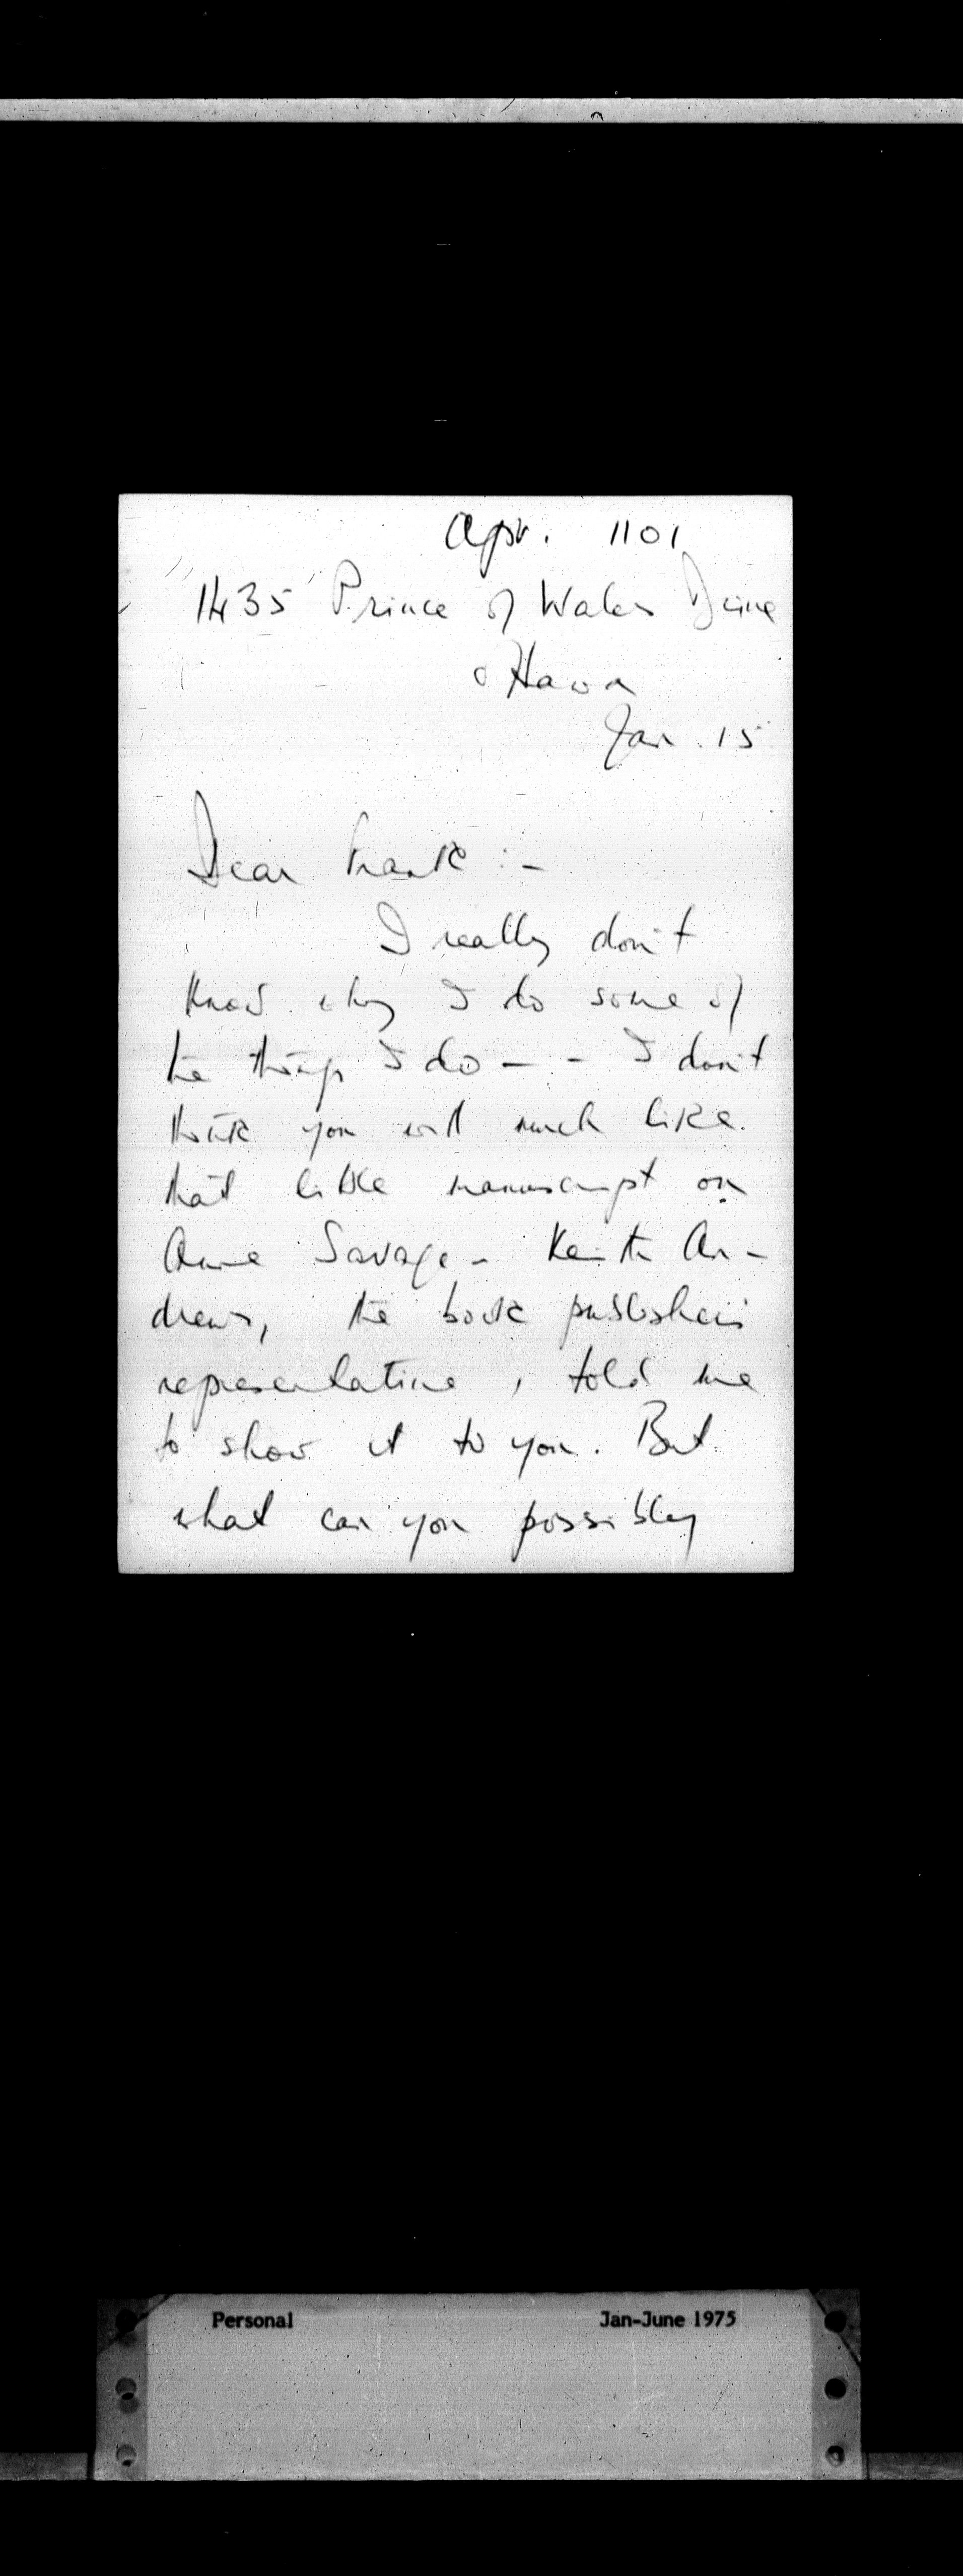 Apr. 1101
1435 Prince of Wales Drive
Ottawa
Jan. 15
Dear Frank :-
I really don't
know why I do some of
the things I do - - I don't
think you will much like
that little manuscript on
Anne Savage - Keith An-
drews, the book publisher's
representative, told me
to show it to you. But
what can you possibly
Personal Jan-June 1975